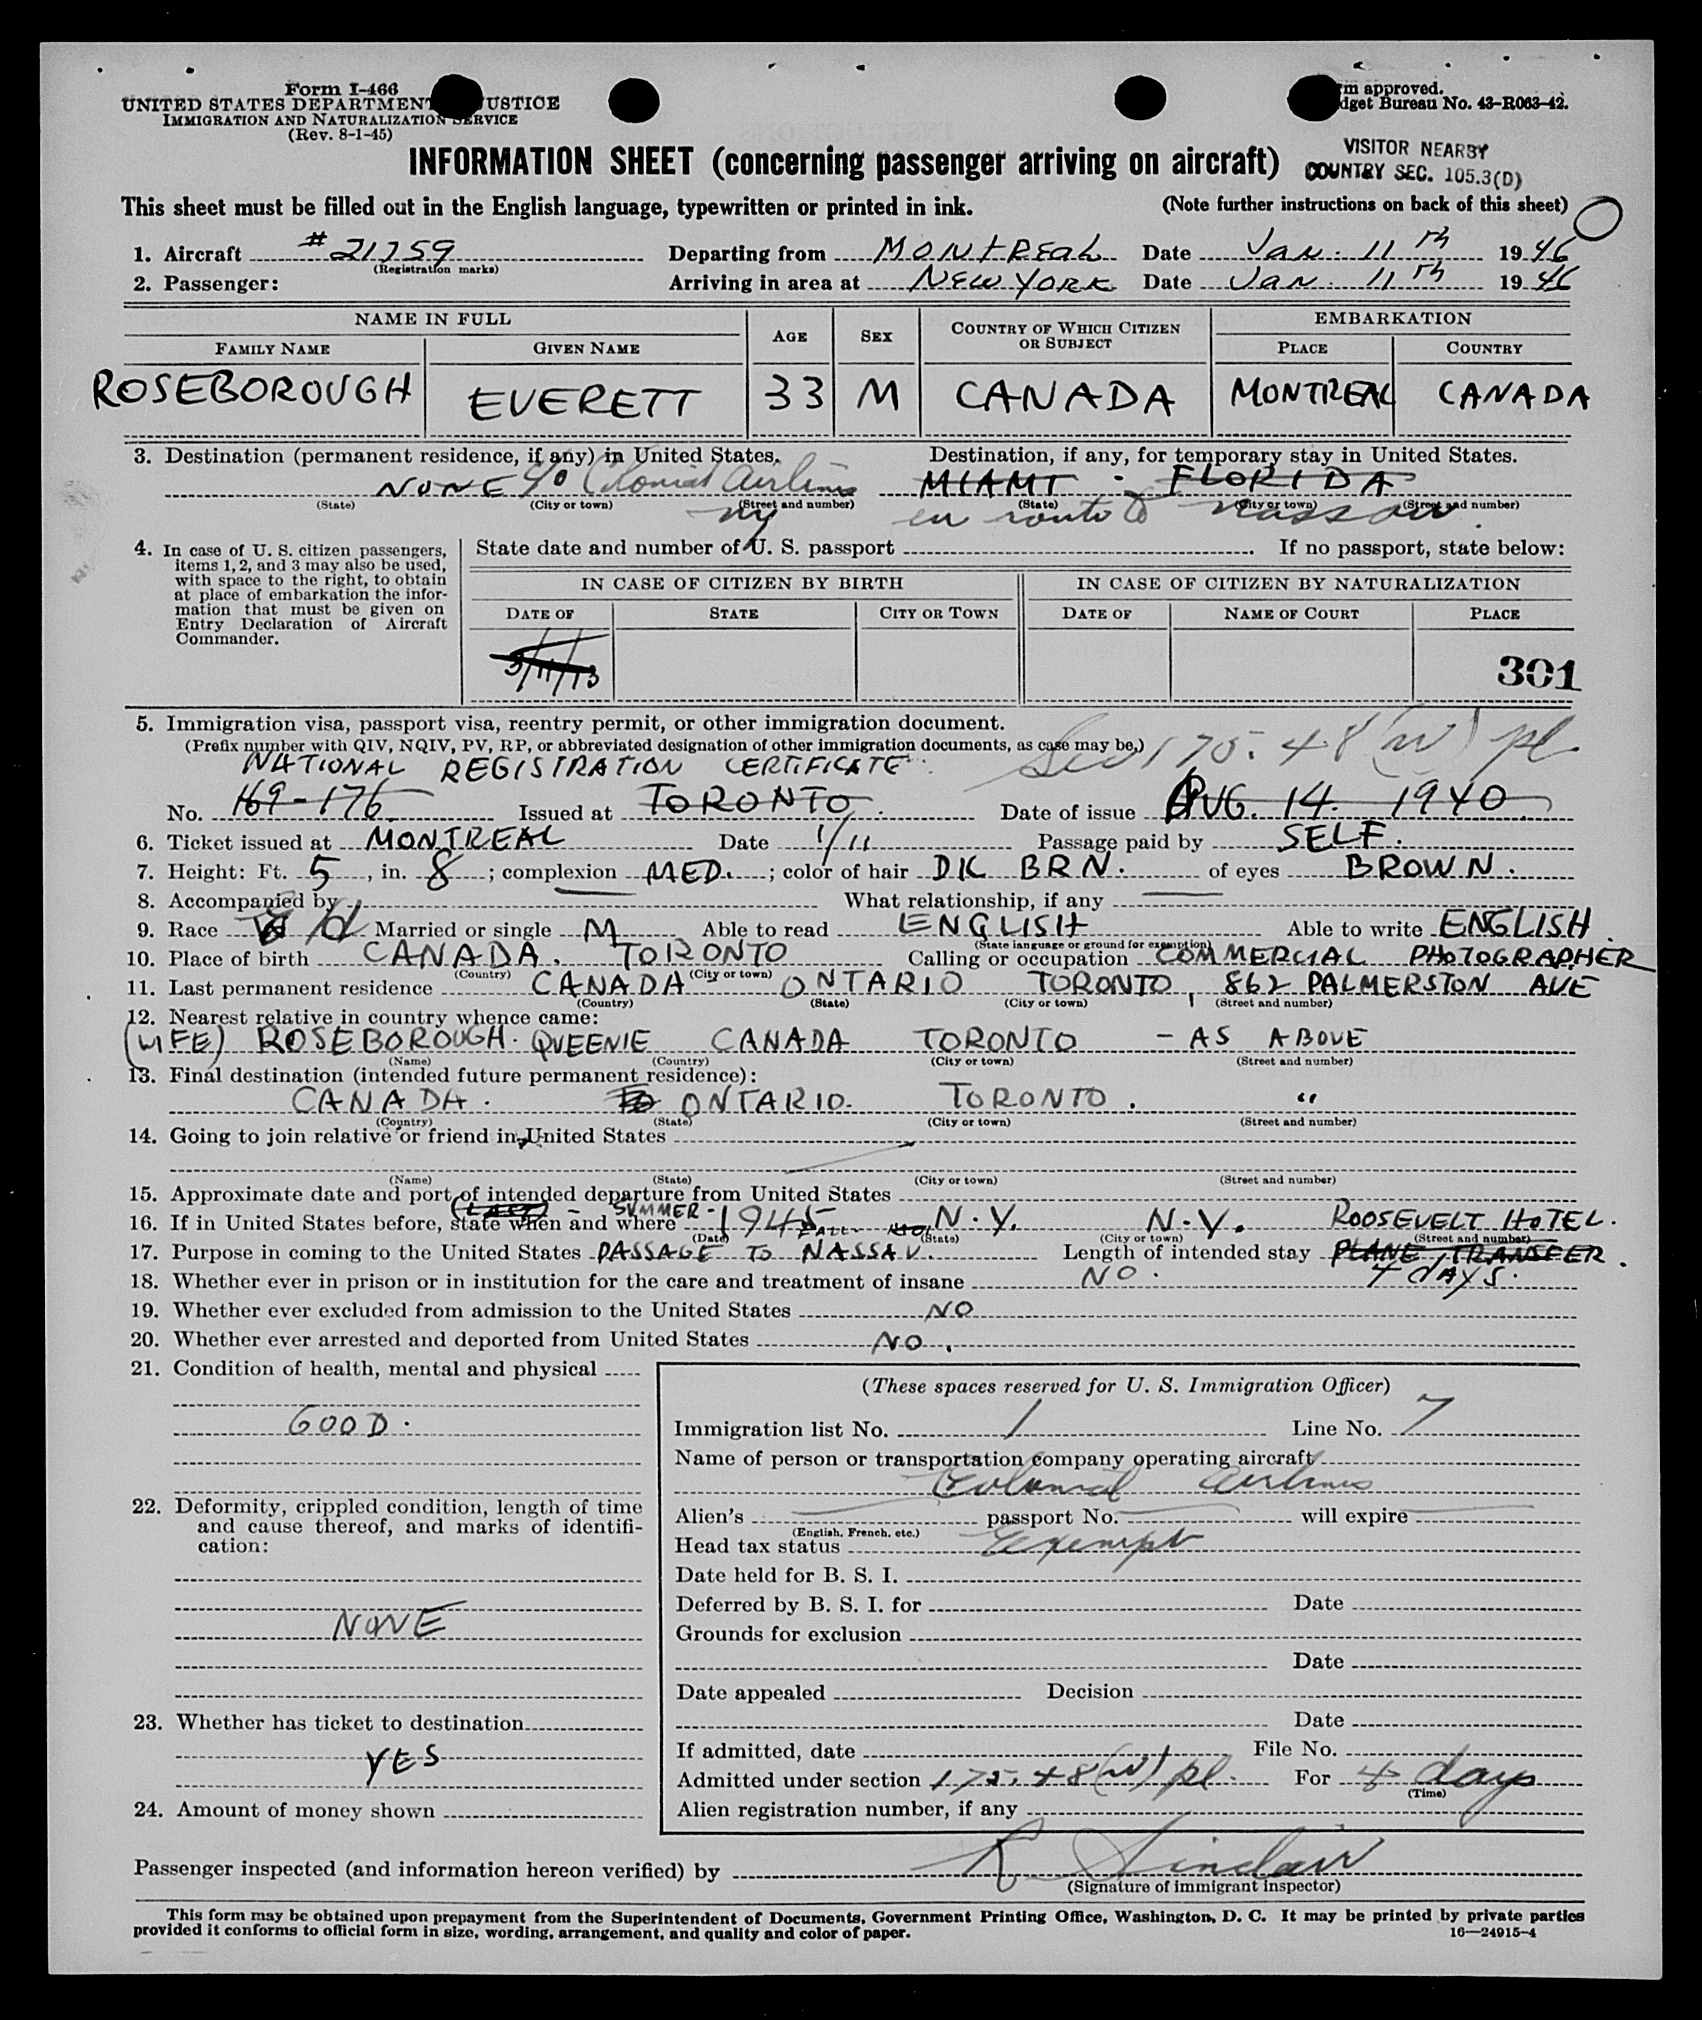 Form I-466
UNITED STATES DEPARTMENT JUSTICE
IMMIGRATION AND NATURALIZATION SERVICE
(Rev. 8-1-45)
m approved.
dget Bureau No. 43-R063-42.
INFORMATION SHEET (concerning passenger arriving on aircraft)
VISITOR NEARBY
COUNTRY SEC. 105.3(D)
This sheet must be filled out in the English language, typewritten or printed in ink.
(Note further instructions on back of this sheet)
1. Aircraft #21759 Departing from MONTREAL Date Jan. 11th 1946
(Registration marks)
2. Passenger: Arriving in area at NEW YORK Date Jan. 11th 1946
NAME IN FULL AGE SEX COUNTRY OF WHICH CITIZEN OR SUBJECT EMBARKATION
FAMILY NAME GIVEN NAME PLACE COUNTRY
ROSEBOROUGH EVERETT 33 M CANADA MONTREAL CANADA
3. Destination (permanent residence, if any) in United States. Destination, if any, for temporary stay in United States.
NONE c/o Colonial Airlines MIAMI - FLORIDA
(State) (City or town) (Street and number) (State) (City or town) (Street and number)
NY en route to Nassau
4. In case of U. S. citizen passengers, items 1, 2, and 3 may also be used, with space to the right, to obtain at place of embarkation the information that must be given on Entry Declaration of Aircraft Commander.
State date and number of U. S. passport If no passport, state below:
IN CASE OF CITIZEN BY BIRTH IN CASE OF CITIZEN BY NATURALIZATION
DATE OF STATE CITY OR TOWN DATE OF NAME OF COURT PLACE
3/11/13 301
5. Immigration visa, passport visa, reentry permit, or other immigration document.
(Prefix number with QIV, NQIV, PV, RP, or abbreviated designation of other immigration documents, as case may be,)
Sec 175.48(w) pl
NATIONAL REGISTRATION CERTIFICATE
No. 169-176 Issued at TORONTO Date of issue AUG. 14. 1940
6. Ticket issued at MONTREAL Date 1/11 Passage paid by SELF.
7. Height: Ft. 5, in. 8; complexion MED.; color of hair DK BRN. of eyes BROWN.
8. Accompanied by What relationship, if any
9. Race Married or single M Able to read ENGLISH Able to write ENGLISH.
(State language or ground for exemption)
10. Place of birth CANADA. TORONTO Calling or occupation COMMERCIAL PHOTOGRAPHER
(Country) (City or town)
11. Last permanent residence CANADA ONTARIO TORONTO, 862 PALMERSTON AVE
(Country) (State) (City or town) (Street and number)
12. Nearest relative in country whence came:
(WIFE) ROSEBOROUGH. QUEENIE CANADA TORONTO - AS ABOVE
(Name) (Country) (City or town) (Street and number)
13. Final destination (intended future permanent residence):
CANADA. ONTARIO. TORONTO. "
(Country) (State) (City or town) (Street and number)
14. Going to join relative or friend in United States
(Name) (State) (City or town) (Street and number)
15. Approximate date and port of intended departure from United States
16. If in United States before, state when and where SUMMER - 1945 N.Y. N.Y. ROOSEVELT HOTEL.
(Date) (State) (City or town) (Street and number)
17. Purpose in coming to the United States PASSAGE TO NASSAU. Length of intended stay PLANE TRANSFER.
4 DAYS.
18. Whether ever in prison or in institution for the care and treatment of insane NO.
19. Whether ever excluded from admission to the United States NO
20. Whether ever arrested and deported from United States NO.
21. Condition of health, mental and physical
GOOD.
22. Deformity, crippled condition, length of time and cause thereof, and marks of identification:
NONE
23. Whether has ticket to destination
YES
24. Amount of money shown
(These spaces reserved for U. S. Immigration Officer)
Immigration list No. 1 Line No. 7
Name of person or transportation company operating aircraft
Colonial Airlines
Alien's passport No. will expire
(English, French, etc.)
Head tax status Exempt
Date held for B. S. I.
Deferred by B. S. I. for Date
Grounds for exclusion
Date
Date appealed Decision
Date
If admitted, date File No.
Admitted under section 175.48(w) pl. For 4 days
(Time)
Alien registration number, if any
Passenger inspected (and information hereon verified) by R Sinclair
(Signature of immigrant inspector)
This form may be obtained upon prepayment from the Superintendent of Documents, Government Printing Office, Washington, D. C. It may be printed by private parties
provided it conforms to official form in size, wording, arrangement, and quality and color of paper.
16—24915-4